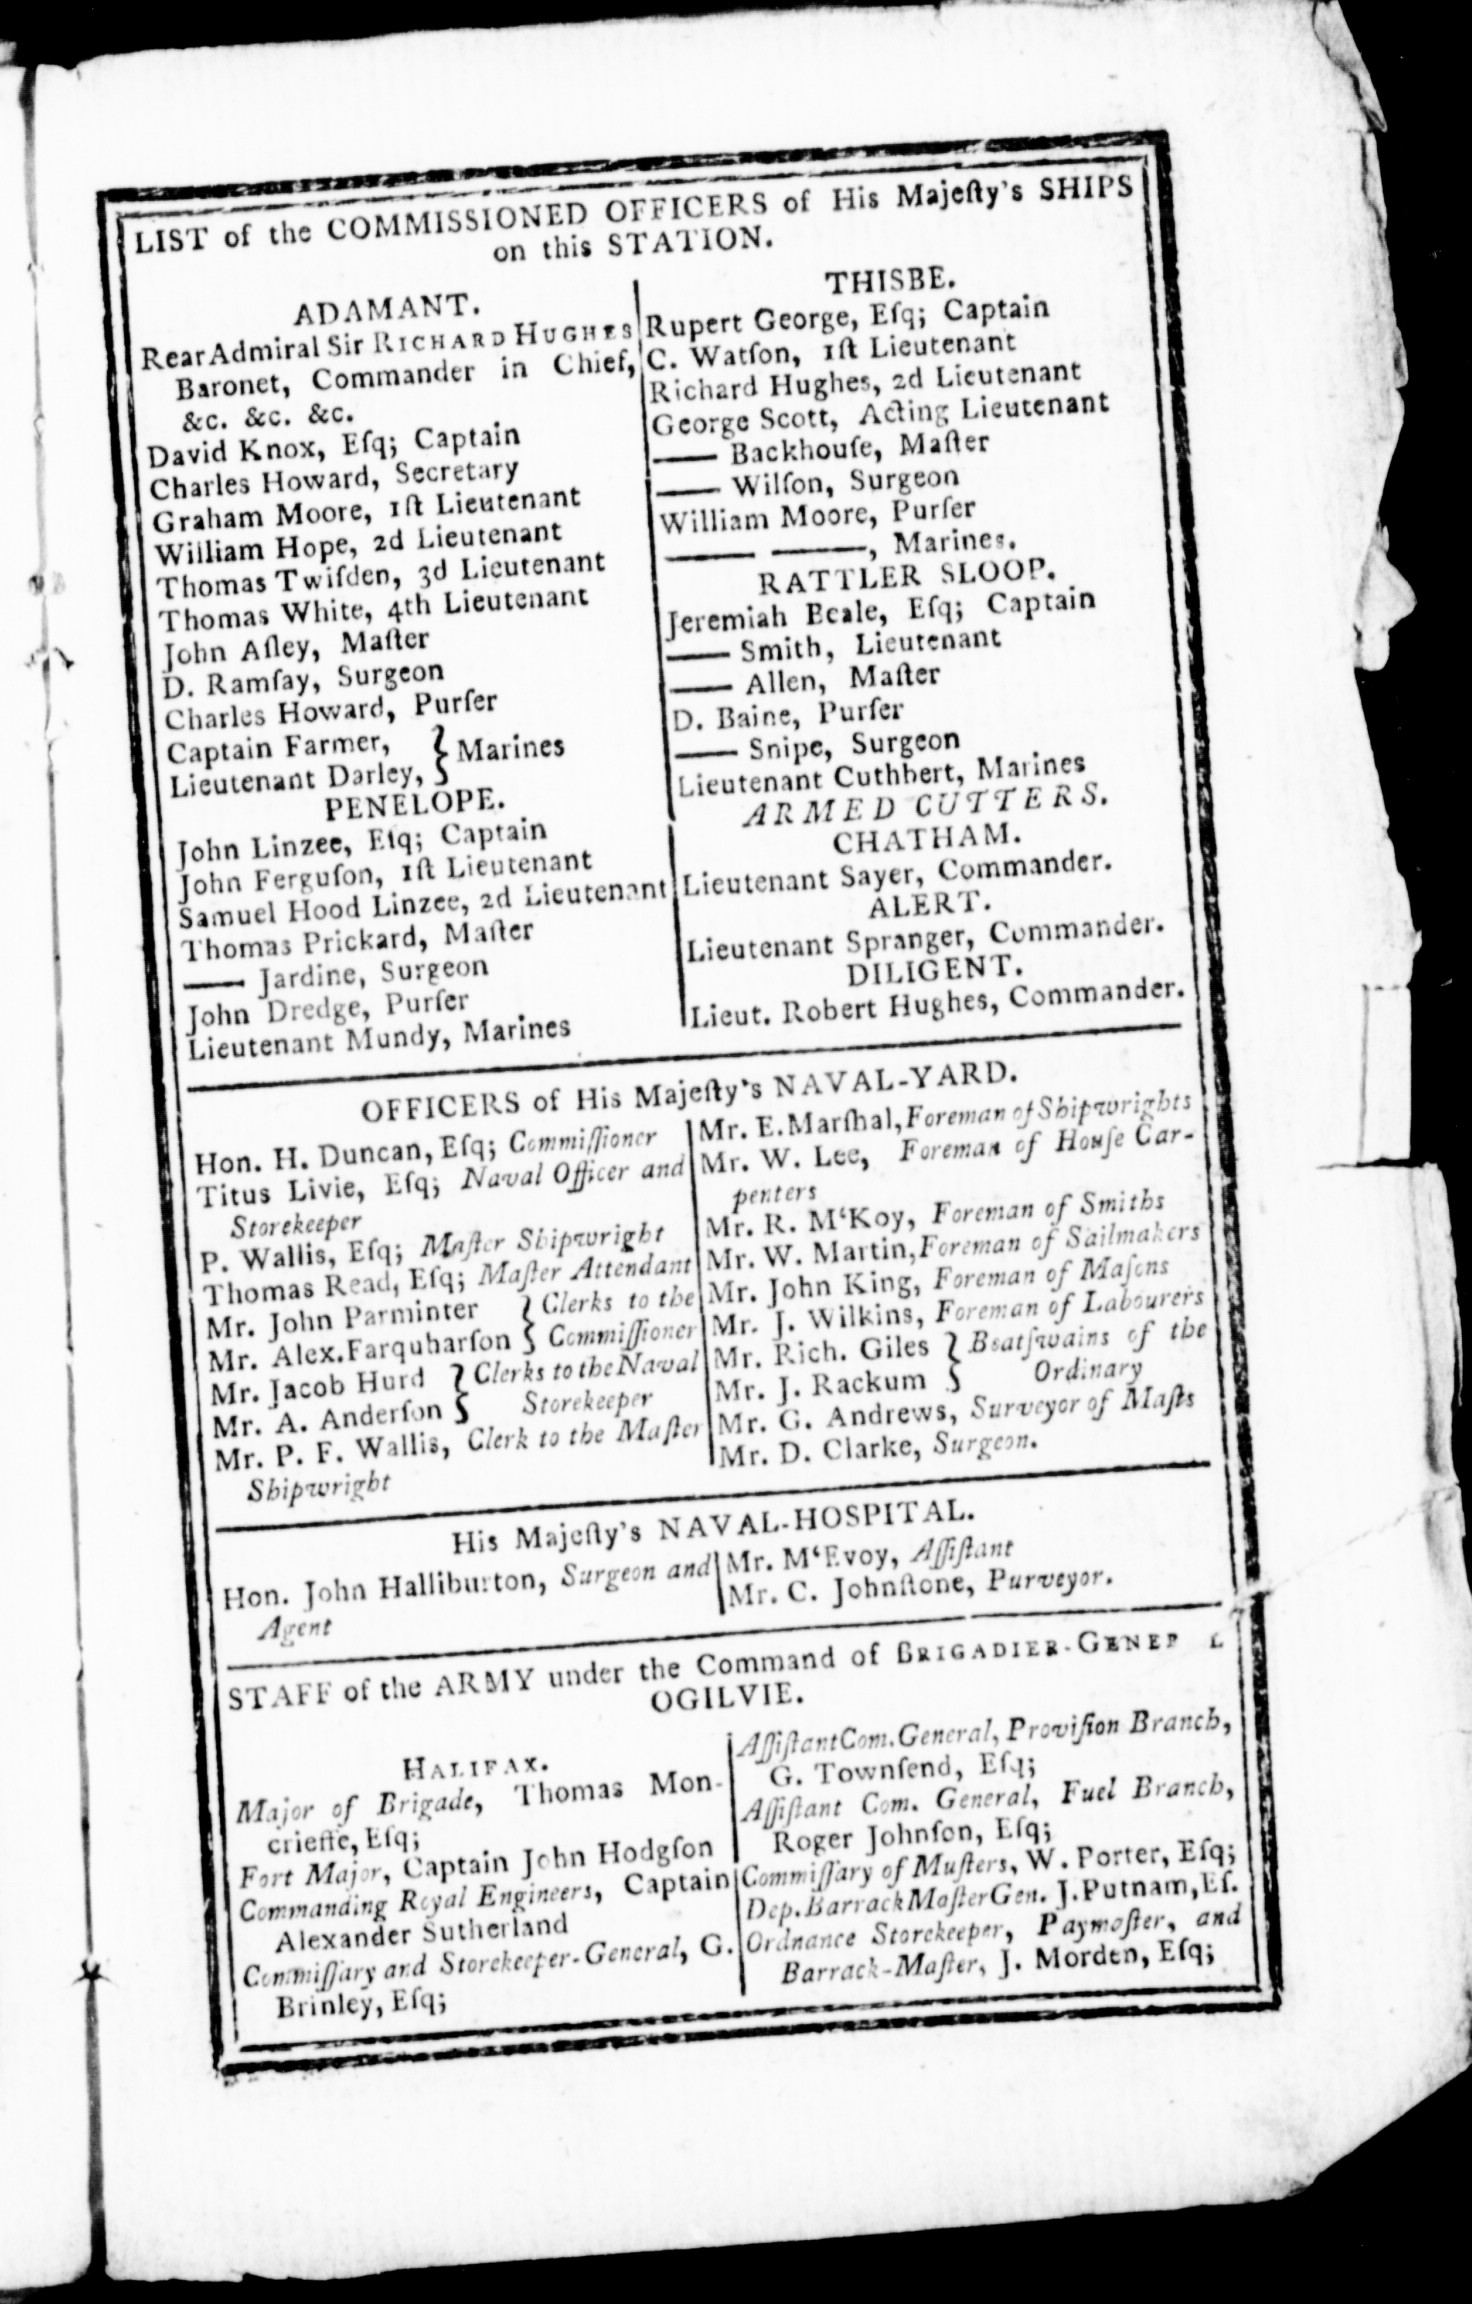 LIST of the COMMISSIONED OFFICERS of His Majeſty's SHIPS
on this STATION.
ADAMANT.
Rear Admiral Sir RICHARD HUGHES
Baronet, Commander in Chief,
&c. &c. &c.
David Knox, Eſq; Captain
Charles Howard, Secretary
Graham Moore, 1ſt Lieutenant
William Hope, 2d Lieutenant
Thomas Twiſden, 3d Lieutenant
Thomas White, 4th Lieutenant
John Aſley, Maſter
D. Ramſay, Surgeon
Charles Howard, Purſer
Captain Farmer, } Marines
Lieutenant Darley,
PENELOPE.
John Linzee, Eſq; Captain
John Ferguſon, 1ſt Lieutenant
Samuel Hood Linzee, 2d Lieutenant
Thomas Prickard, Maſter
—— Jardine, Surgeon
John Dredge, Purſer
Lieutenant Mundy, Marines
THISBE.
Rupert George, Eſq; Captain
C. Watſon, 1ſt Lieutenant
Richard Hughes, 2d Lieutenant
George Scott, Acting Lieutenant
—— Backhouſe, Maſter
—— Wilſon, Surgeon
William Moore, Purſer
—— ——, Marines.
RATTLER SLOOP.
Jeremiah Beale, Eſq; Captain
—— Smith, Lieutenant
—— Allen, Maſter
D. Baine, Purſer
—— Snipe, Surgeon
Lieutenant Cuthbert, Marines
ARMED CUTTERS.
CHATHAM.
Lieutenant Sayer, Commander.
ALERT.
Lieutenant Spranger, Commander.
DILIGENT.
Lieut. Robert Hughes, Commander.
OFFICERS of His Majeſty's NAVAL-YARD.
Hon. H. Duncan, Eſq; Commiſſioner
Titus Livie, Eſq; Naval Officer and
Storekeeper
P. Wallis, Eſq; Maſter Shipwright
Thomas Read, Eſq; Maſter Attendant
Mr. John Parminter } Clerks to the
Mr. Alex. Farquharſon } Commiſſioner
Mr. Jacob Hurd } Clerks to the Naval
Mr. A. Anderſon } Storekeeper
Mr. P. F. Wallis, Clerk to the Maſter
Shipwright
Mr. E. Marſhal, Foreman of Shipwrights
Mr. W. Lee, Foreman of Houſe Car-
penters
Mr. R. M‘Koy, Foreman of Smiths
Mr. W. Martin, Foreman of Sailmakers
Mr. John King, Foreman of Maſons
Mr. J. Wilkins, Foreman of Labourers
Mr. Rich. Giles } Boatſwains of the
Mr. J. Rackum } Ordinary
Mr. G. Andrews, Surveyor of Maſts
Mr. D. Clarke, Surgeon.
His Majeſty's NAVAL-HOSPITAL.
Hon. John Halliburton, Surgeon and
Agent
Mr. M‘Evoy, Aſſiſtant
Mr. C. Johnſtone, Purveyor.
STAFF of the ARMY under the Command of BRIGADIER-GENER L
OGILVIE.
HALIFAX.
Major of Brigade, Thomas Mon-
crieffe, Eſq;
Fort Major, Captain John Hodgſon
Commanding Royal Engineers, Captain
Alexander Sutherland
Commiſſary and Storekeeper-General, G.
Brinley, Eſq;
Aſſiſtant Com. General, Proviſion Branch,
G. Townſend, Eſq;
Aſſiſtant Com. General, Fuel Branch,
Roger Johnſon, Eſq;
Commiſſary of Muſters, W. Porter, Eſq;
Dep. Barrack Maſter Gen. J. Putnam, Eſ.
Ordnance Storekeeper, Paymaſter, and
Barrack-Maſter, J. Morden, Eſq;